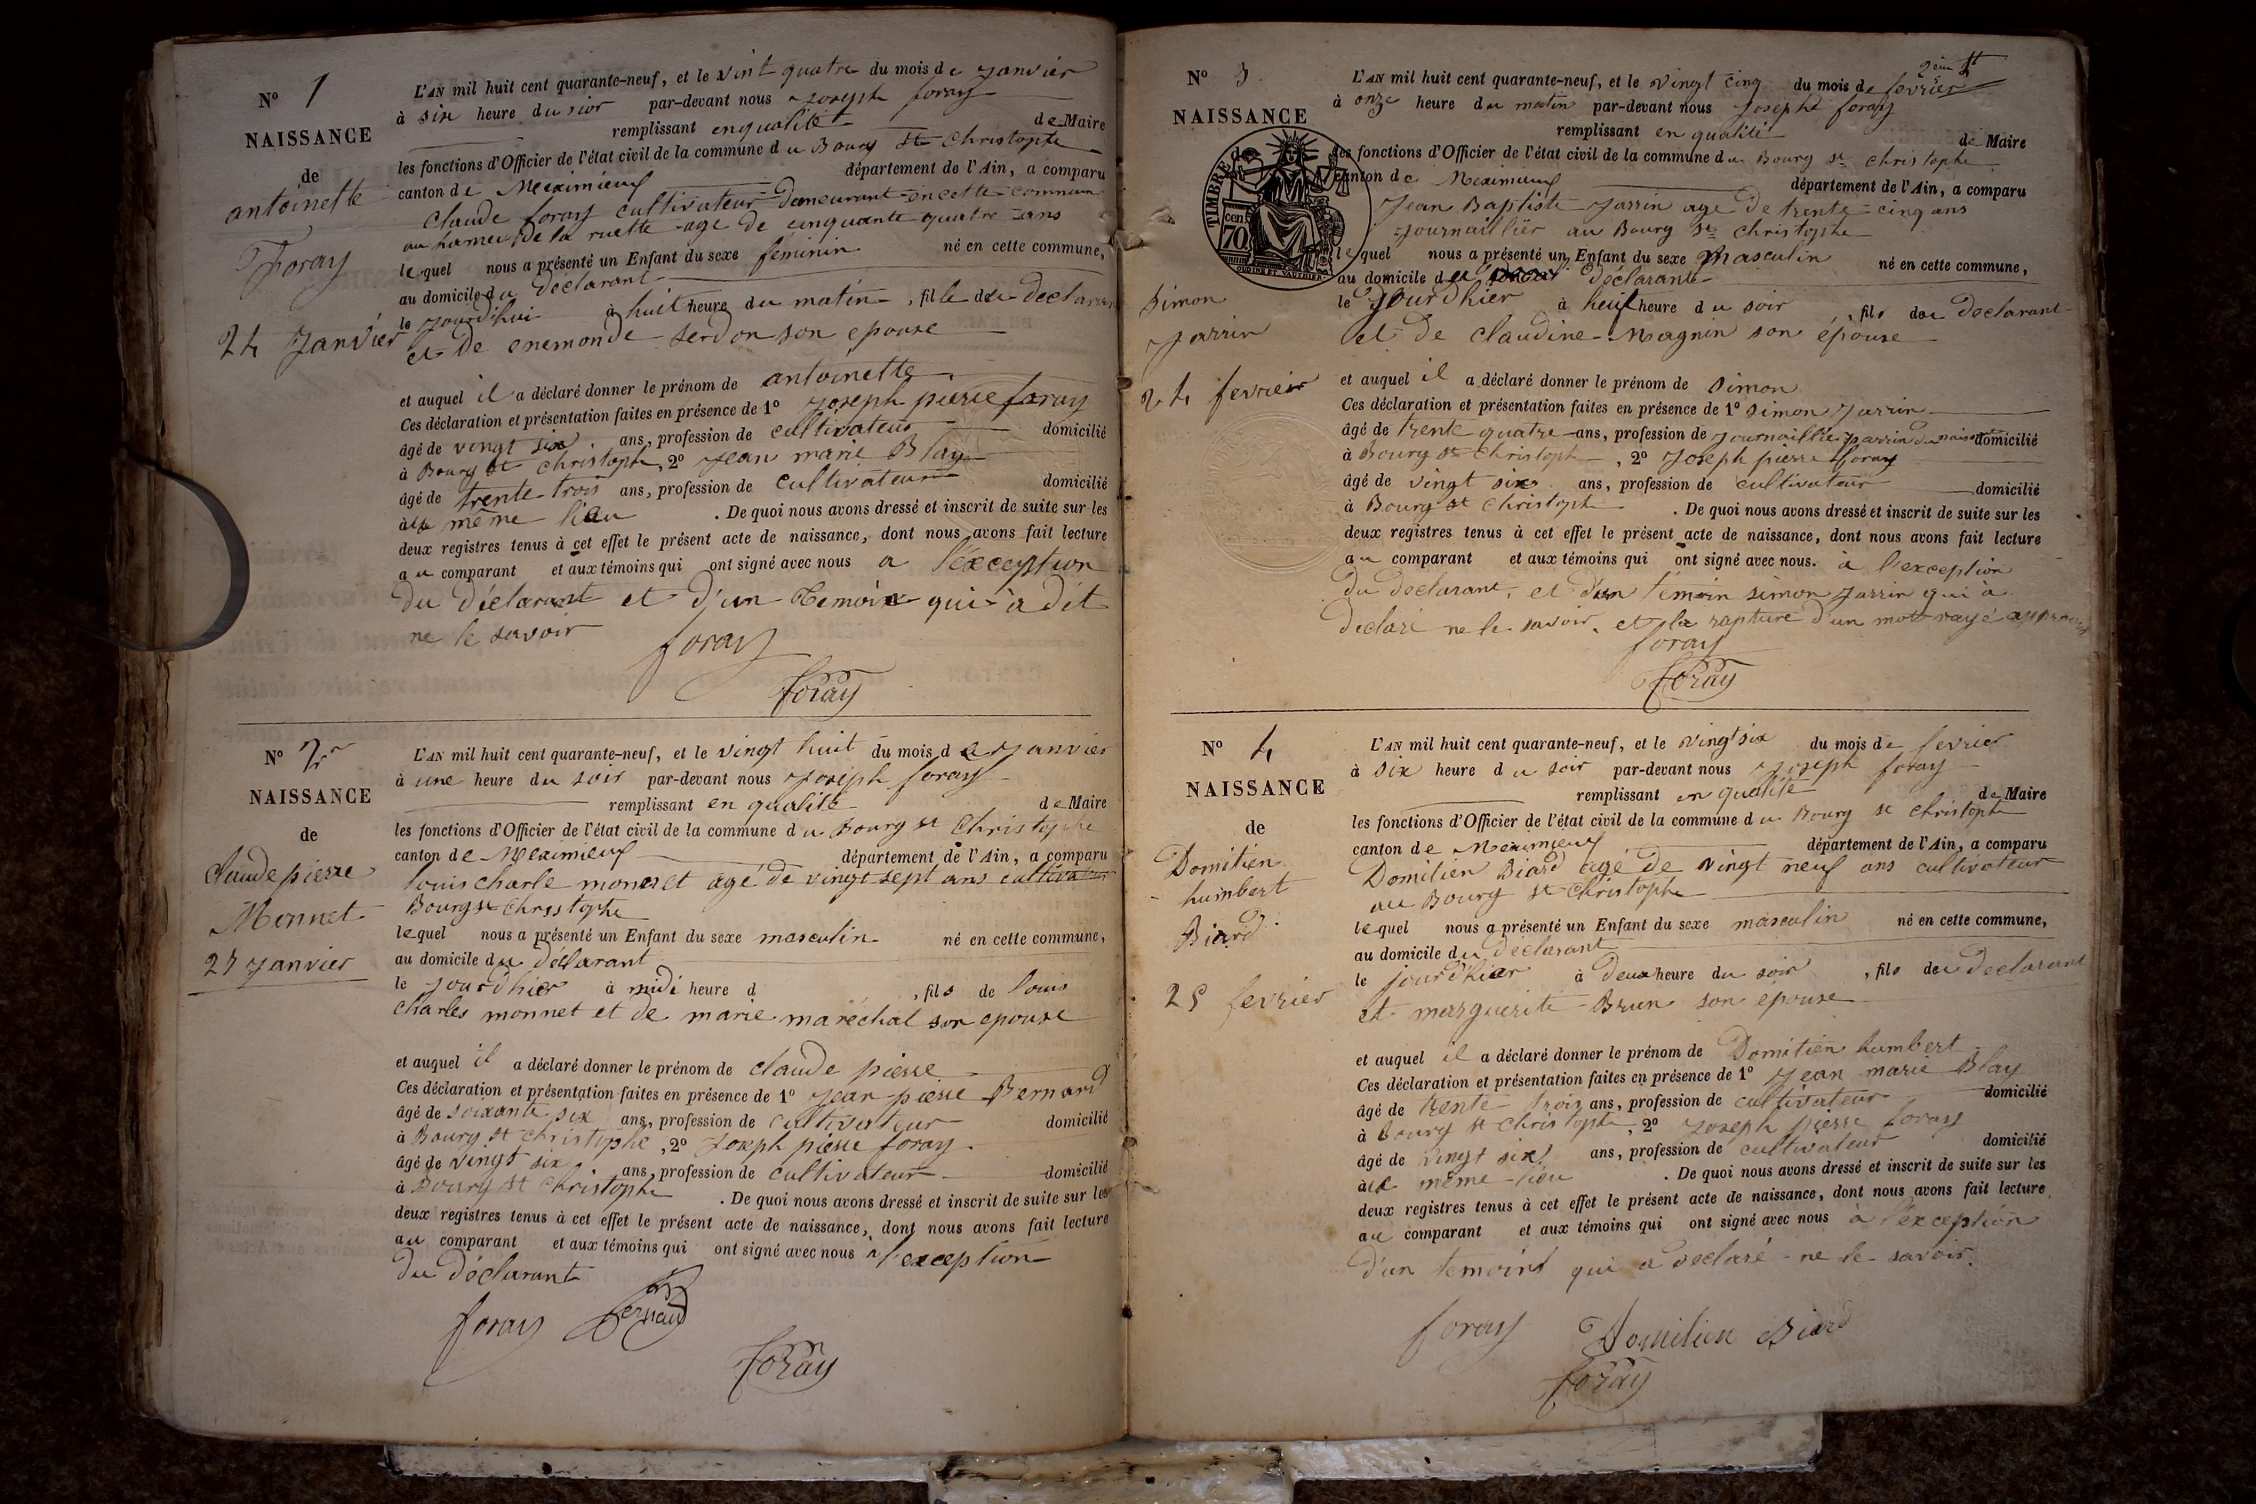 N° 1
NAISSANCE
de
antoinette
Foray
24 Janvier
L'AN mil huit cent quarante-neuf, et le vint quatre du mois de Janvier
à six heure du sior par-devant nous Joseph foray
remplissant enqualité de Maire
les fonctions d'Officier de l'état civil de la commune du Bourg st Christophe
canton de Meximieux département de l'Ain, a comparu
Claude foray cultivateur demeurant en cette commune
au hameu de la ruette age de cinquante quatre ans
lequel nous a présenté un Enfant du sexe féminin né en cette commune,
au domicile du Declarant
le jourdhui à huit heure du matin, fille du declarant
et de enemonde serdon son epouse
et auquel il a déclaré donner le prénom de antoinette
Ces déclaration et présentation faites en présence de 1° Joseph pierre foray
âgé de vingt six ans, profession de cultivateur domicilié
à Bourg st Christophe, 2° Jean marie Blay
âgé de trente trois ans, profession de cultivateur domicilié
au même lieu. De quoi nous avons dressé et inscrit de suite sur les
deux registres tenus à cet effet le présent acte de naissance, dont nous avons fait lecture
au comparant et aux témoins qui ont signé avec nous a l'éxception
du déclarant et d'un temoin qui à dit
ne le savoir
foray
foray
N° 2
NAISSANCE
de
Claude pierre
Monnet
27 Janvier
L'AN mil huit cent quarante-neuf, et le vingt huit du mois de Janvier
à une heure du soir par-devant nous Joseph foray
remplissant en qualité de Maire
les fonctions d'Officier de l'état civil de la commune du Bourg st Christophe
canton de Meximieux département de l'Ain, a comparu
louis charle monnet agé de vingt sept ans cultivateur
Bourg st Christophe
lequel nous a présenté un Enfant du sexe masculin né en cette commune,
au domicile du déclarant
le jourdhier à midi heure d, fils de louis
charles monnet et de marie maréchal son epouse
et auquel il a déclaré donner le prénom de claude pierre
Ces déclaration et présentation faites en présence de 1° Jean pierre Bernard
âgé de soixante six ans, profession de cultivateur domicilié
à Bourg st Christophe, 2° Joseph pierre foray
âgé de vingt six ans, profession de cultivateur domicilié
à Bourg st Christophe. De quoi nous avons dressé et inscrit de suite sur les
deux registres tenus à cet effet le présent acte de naissance, dont nous avons fait lecture
au comparant et aux témoins qui ont signé avec nous a l'exception
du déclarant
foray Bernard
foray
N° 3
NAISSANCE
de
TIMBRE
70 cen
Simon
Jarrin
24 fevrier
2em ft
L'AN mil huit cent quarante-neuf, et le vingt cinq du mois de fevrier
à onze heure du matin par-devant nous Josephe foray
remplissant en qualité de Maire
les fonctions d'Officier de l'état civil de la commune du Bourg st Christophe
canton de Meximieux département de l'Ain, a comparu
Jean Baptiste Jarrin age de trente cinq ans
Journaillier au Bourg st Christophe
lequel nous a présenté un Enfant du sexe Masculin né en cette commune,
au domicile du déclarant
le Jourdhier à neuf heure du soir, fils du declarant
et de Claudine Magnin son épouse
et auquel il a déclaré donner le prénom de Simon
Ces déclaration et présentation faites en présence de 1° Simon Jarrin
âgé de trente quatre ans, profession de journaillié parrin du domicilié
à Bourg st Christophe, 2° Joseph pierre foray
âgé de vingt six ans, profession de cultivateur domicilié
à Bourg st Christophe. De quoi nous avons dressé et inscrit de suite sur les
deux registres tenus à cet effet le présent acte de naissance, dont nous avons fait lecture
au comparant et aux témoins qui ont signé avec nous. à l'exception
du declarant, et d'un témoin simon Jarrin qui à
declaré ne le savoir. et la rapture d'un mot rayé approuvé
foray
foray
N° 4
NAISSANCE
de
Domitien
humbert
Biard
25 fevrier
L'AN mil huit cent quarante-neuf, et le vingt six du mois de fevrier
à six heure du soir par-devant nous Joseph foray
remplissant en qualité de Maire
les fonctions d'Officier de l'état civil de la commune du Bourg st Christophe
canton de Meximieux département de l'Ain, a comparu
Domitien Biard agé de vingt neuf ans cultivateur
au Bourg st Christophe
lequel nous a présenté un Enfant du sexe masculin né en cette commune,
au domicile du déclarant
le jourdhier à deux heure du soir, fils du declarant
et marguerite Brun son épouse
et auquel il a déclaré donner le prénom de Domitien humbert
Ces déclaration et présentation faites en présence de 1° Jean marie Blay
âgé de trente trois ans, profession de cultivateur domicilié
à Bourg st Christophe, 2° Joseph pierre foray
âgé de vingt six ans, profession de cultivateur domicilié
au même lieu. De quoi nous avons dressé et inscrit de suite sur les
deux registres tenus à cet effet le présent acte de naissance, dont nous avons fait lecture
au comparant et aux témoins qui ont signé avec nous à l'exception
d'un temoint qui a declaré ne le savoir.
foray Domitien Biard
foray